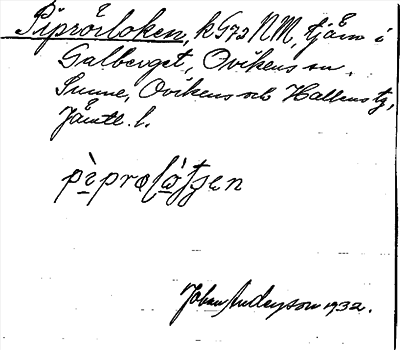 Piprörloken, k 572 NM, tjärn i
Galberget, Ovikens sn.
Sunne, Ovikens och Hallens tg,
Jämtl. l.
Johan Anderson 1932.